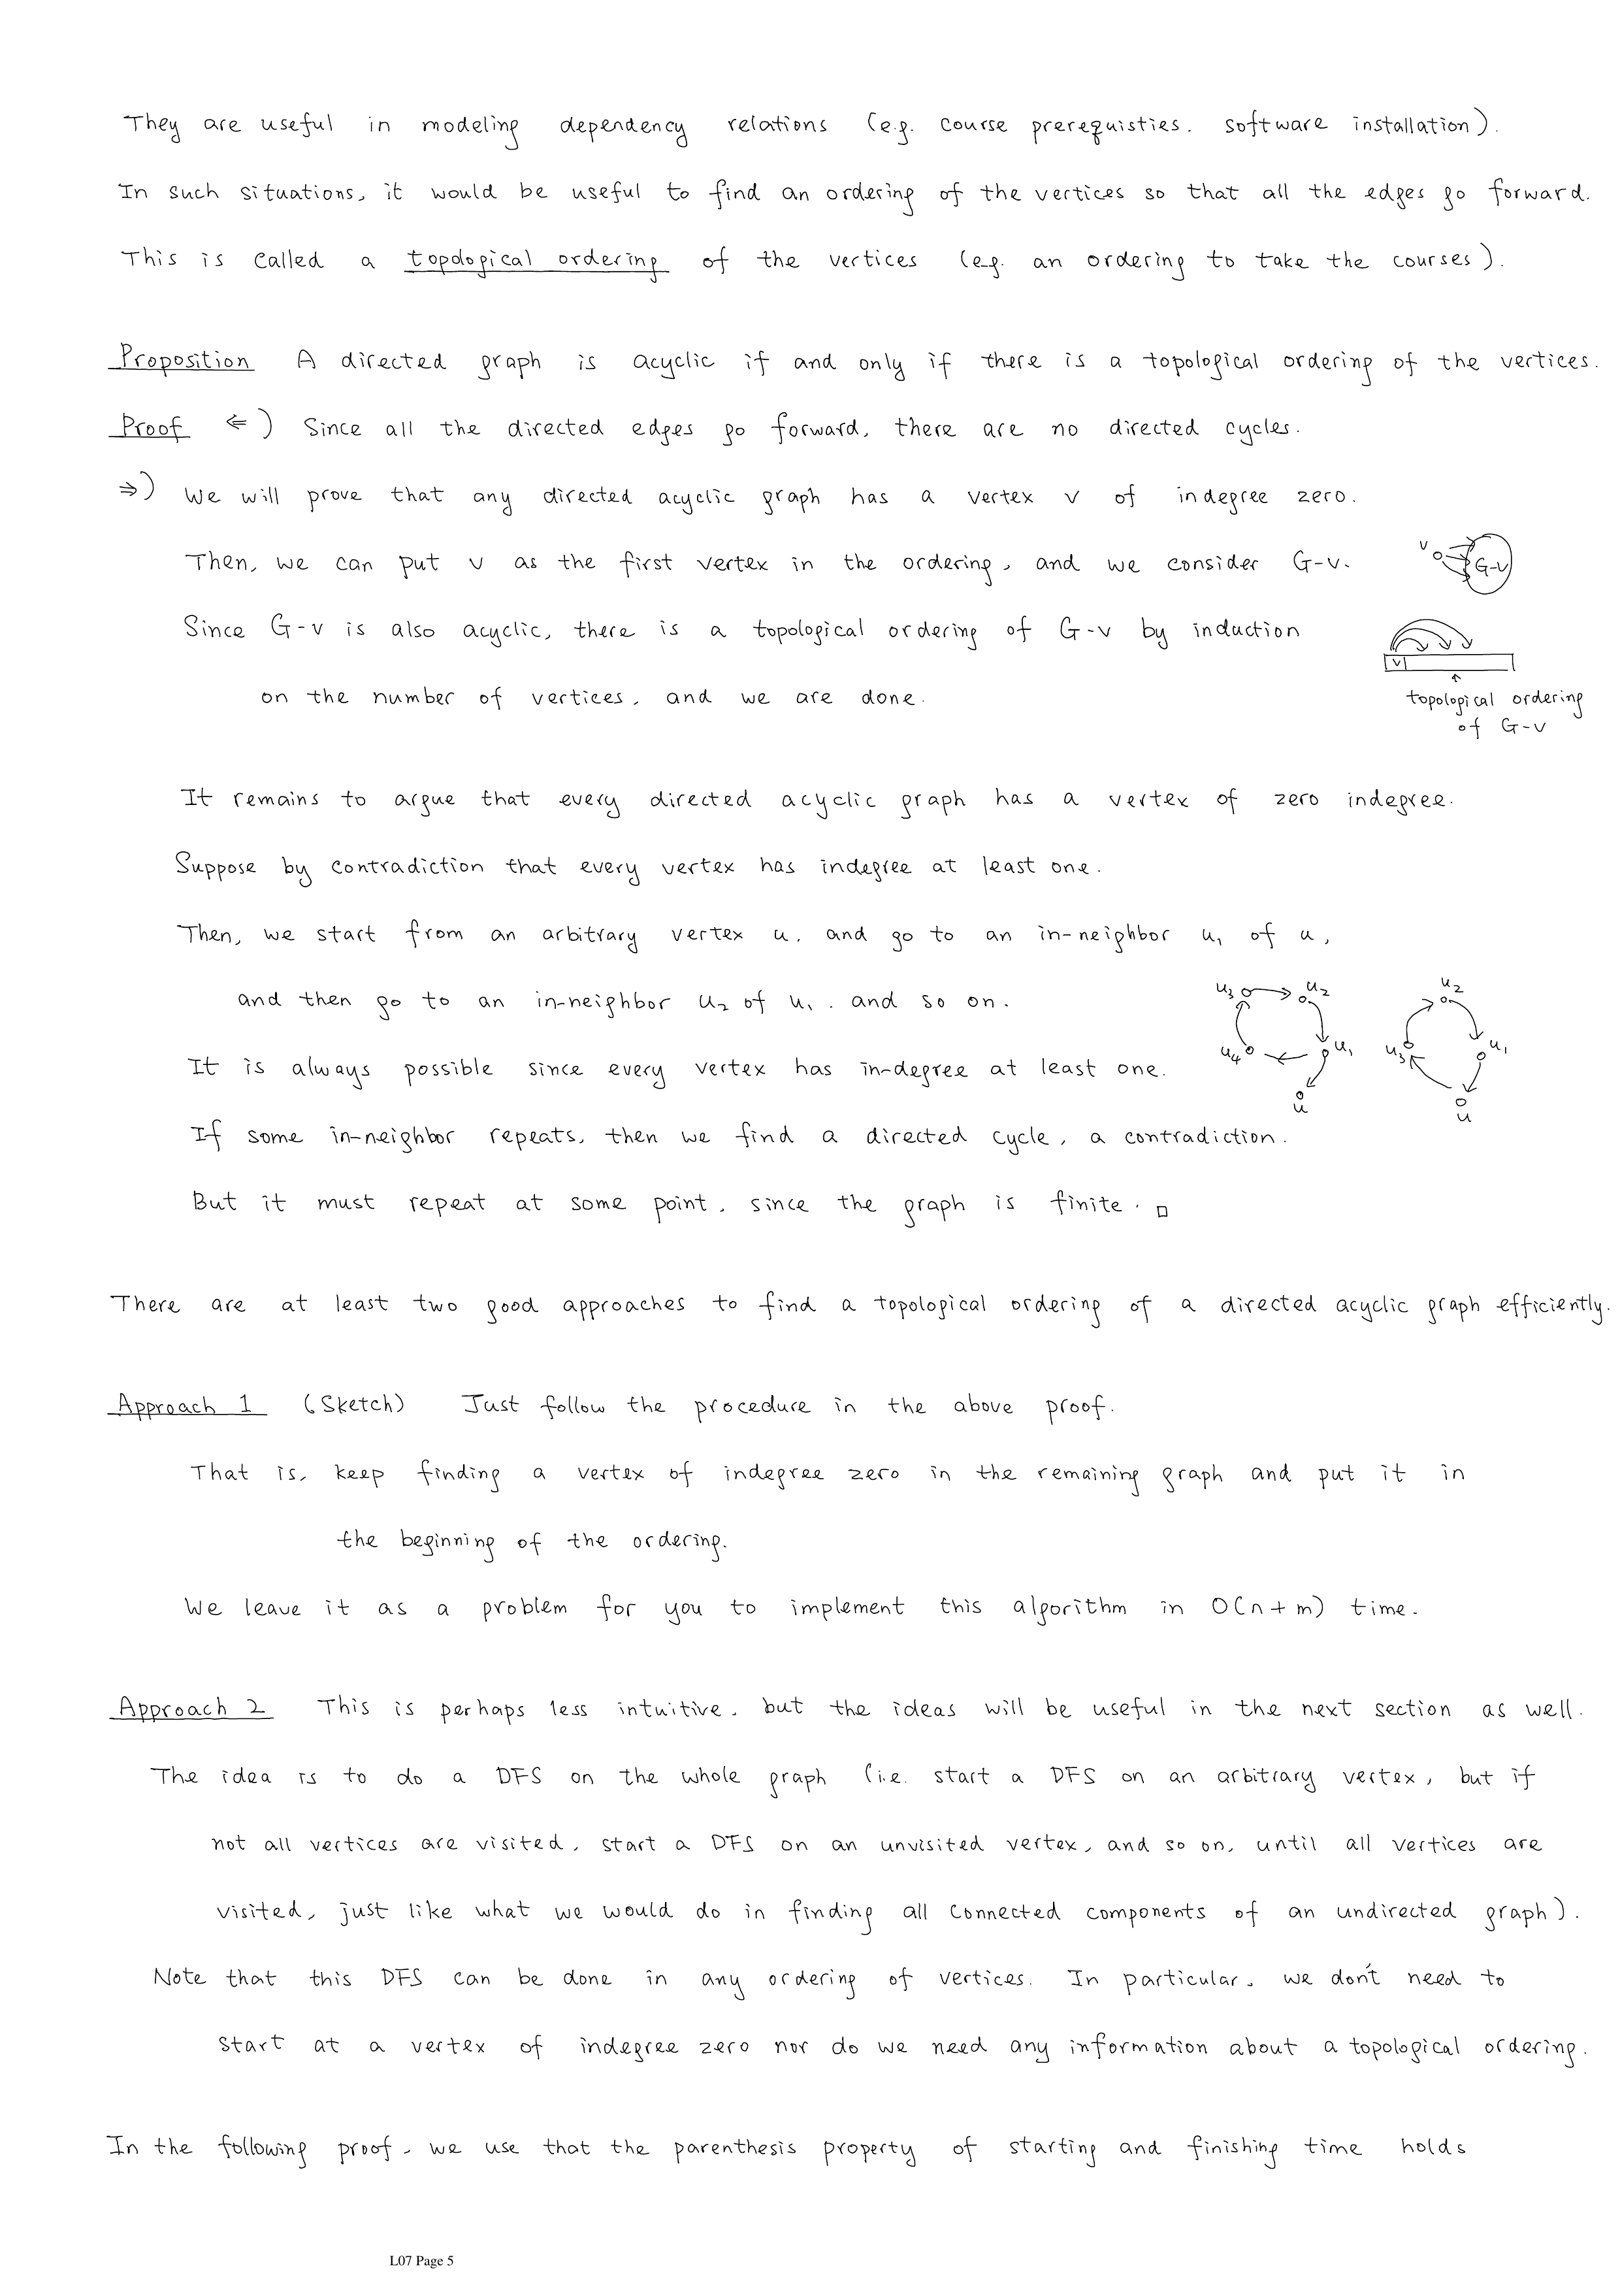 They are useful in modeling dependency relations (e.g. course prerequisties. software installation).
In such situations, it would be useful to find an ordering of the vertices so that all the edges go forward.
This is called a topological ordering of the vertices (e.g. an ordering to take the courses).
Proposition A directed graph is acyclic if and only if there is a topological ordering of the vertices.
Proof ⇐) Since all the directed edges go forward, there are no directed cycles.
⇒) We will prove that any directed acyclic graph has a vertex v of indegree zero.
Then, we can put v as the first vertex in the ordering, and we consider G-v.
v G-v
Since G-v is also acyclic, there is a topological ordering of G-v by induction
on the number of vertices, and we are done.
v
topological ordering
of G-v
It remains to argue that every directed acyclic graph has a vertex of zero indegree.
Suppose by contradiction that every vertex has indegree at least one.
Then, we start from an arbitrary vertex u, and go to an in-neighbor u₁ of u,
and then go to an in-neighbor u₂ of u₁, and so on.
u₃ u₂ u₂
u₄ u₁ u₃ u₁
u u
It is always possible since every vertex has in-degree at least one.
If some in-neighbor repeats, then we find a directed cycle, a contradiction.
But it must repeat at some point, since the graph is finite. □
There are at least two good approaches to find a topological ordering of a directed acyclic graph efficiently.
Approach 1 (Sketch) Just follow the procedure in the above proof.
That is, keep finding a vertex of indegree zero in the remaining graph and put it in
the beginning of the ordering.
We leave it as a problem for you to implement this algorithm in O(n+m) time.
Approach 2 This is perhaps less intuitive, but the ideas will be useful in the next section as well.
The idea is to do a DFS on the whole graph (i.e. start a DFS on an arbitrary vertex, but if
not all vertices are visited, start a DFS on an unvisited vertex, and so on, until all vertices are
visited, just like what we would do in finding all connected components of an undirected graph).
Note that this DFS can be done in any ordering of vertices. In particular, we don't need to
start at a vertex of indegree zero nor do we need any information about a topological ordering.
In the following proof, we use that the parenthesis property of starting and finishing time holds
L07 Page 5